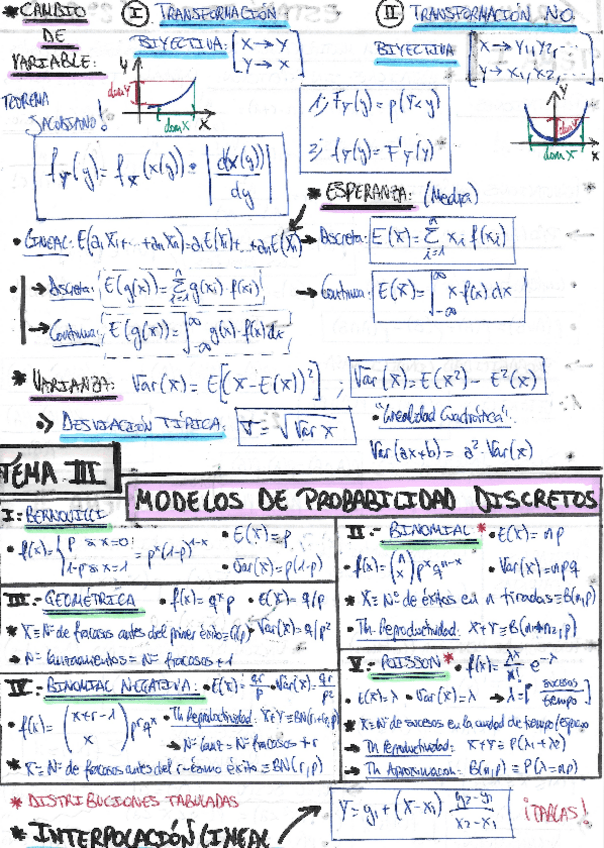 * CAMBIO DE VARIABLE:
TEOREMA JACOBIANO!
I TRANSFORMACIÓN BIYECTIVA: [X → Y
Y → X
dom Y
dom X
f_Y(y) = f_X(x(y)) · |d(x(y))/dy|
II TRANSFORMACIÓN NO BIYECTIVA
[X → Y1, Y2, ...
Y → X1, X2, ...
1) F_Y(y) = p(Y<y)
2) f_Y(y) = F'_Y(y)
dom X
* ESPERANZA: (Media)
• LINEAL: E(a1X1+...+anXn)=a1E(X1)+...+anE(Xn)
→ Discreta: E(X) = Σ_{i=1}^n xi f(xi)
• → Discreta: E(g(x)) = Σ_{i=1}^n g(xi)·f(xi)
→ Continua: E(X) = ∫_{-∞}^{∞} x·f(x) dx
→ Continua: E(g(x)) = ∫_{-∞}^{∞} g(x)·f(x) dx
* VARIANZA: Var(x) = E[(X-E(X))²] ; Var(X) = E(X²) - E²(X)
•) DESVIACIÓN TÍPICA: σ = √Var X
• "Linealidad Cuadrática":
Var(ax+b) = a²·Var(x)
TEMA III
MODELOS DE PROBABILIDAD DISCRETOS
I.- BERNOUILLI
• f(x) = { p si x=0
1-p si x=1 = p^x(1-p)^{1-x}
• E(X) = p
• Var(X) = p(1-p)
II.- BINOMIAL * • E(X) = np
• f(x) = (n x) p^x q^{n-x} • Var(X) = npq
* X ≡ Nº de éxitos en n tiradas ≡ B(n,p)
• Th. Reproductividad: X+Y ≡ B(n1+n2,p)
III.- GEOMÉTRICA • f(x) = q^x p • E(X) = q/p
* X ≡ Nº de fracasos antes del primer éxito ≡ G(p) • Var(X) = q/p²
→ Nº Lanzamientos = Nº fracasos + 1
IV.- BINOMIAL NEGATIVA: • E(X) = qr/p • Var(X) = qr/p²
• f(x) = (x+r-1 x) p^r q^x
• Th Reproductividad: X+Y ≡ BN(r1+r2,p)
→ Nº Lanz = Nº fracasos + r
* X ≡ Nº de fracasos antes del r-ésimo éxito ≡ BN(r,p)
V.- POISSON * • f(x) = λ^x/x! e^{-λ}
• E(X) = λ • Var(X) = λ → λ = [sucesos/tiempo]
* X ≡ Nº de sucesos en la unidad de tiempo/espacio
→ Th Reproductividad: X+Y ≡ P(λ1+λ2)
→ Th Aproximación: B(n,p) ≡ P(λ=np)
* DISTRIBUCIONES TABULADAS
* INTERPOLACIÓN LINEAL
Y = y1 + (X-x1) · (y2-y1)/(x2-x1)
¡TABLAS!